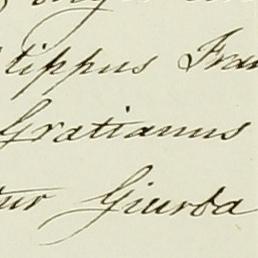 lippus Fran
Gratianus
tur Giurba